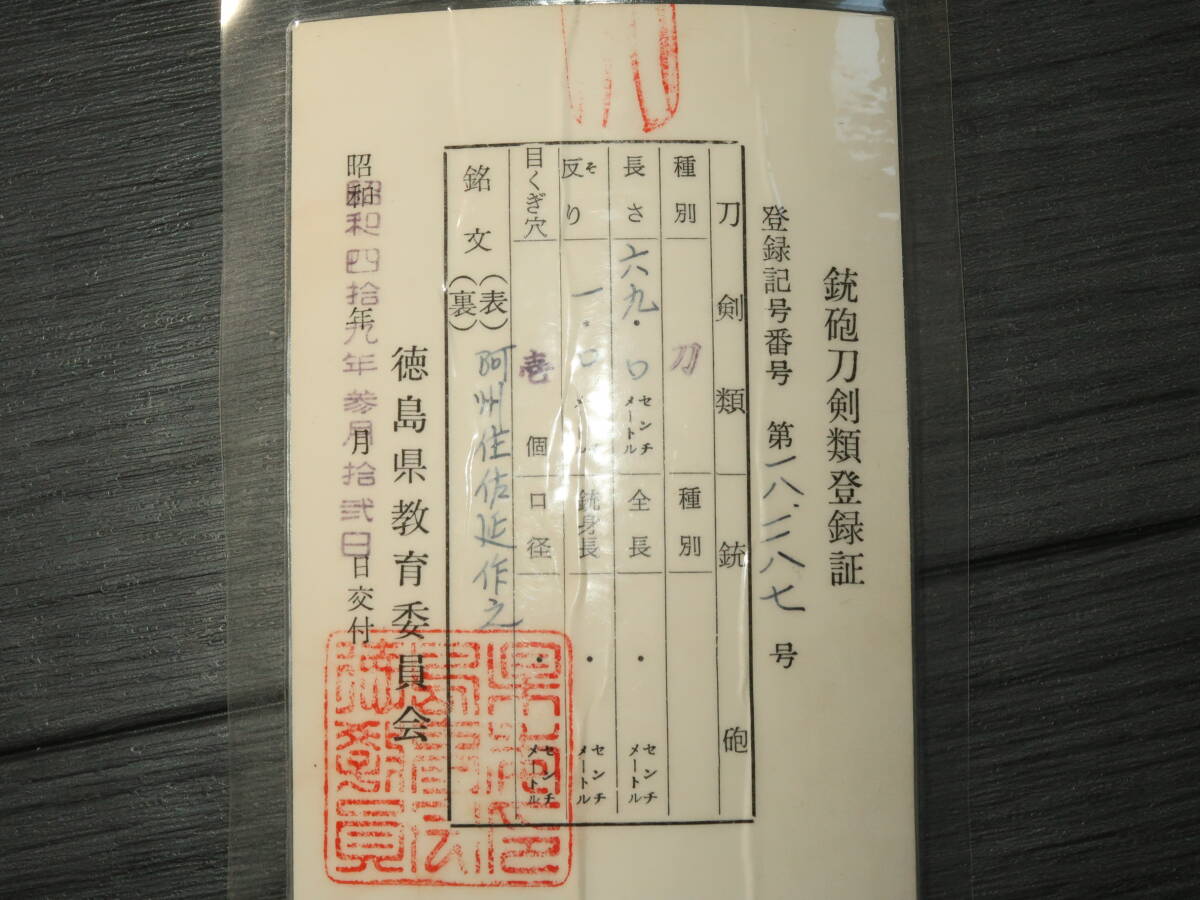 銃砲刀剣類登録証
登録記号番号 第一八、二八七 号
刀剣類 銃砲
種別 刀 種別
長さ 六九・〇 センチメートル 全長 ・ センチメートル
反り そ 一・〇 センチメートル 銃身長 ・ センチメートル
目くぎ穴 壱 個 口径 ・ センチメートル
銘文 (表) 阿州住佐延作之
(裏)
徳島県教育委員会
昭和 年 月 日交付
昭和四拾九年参月拾弐日